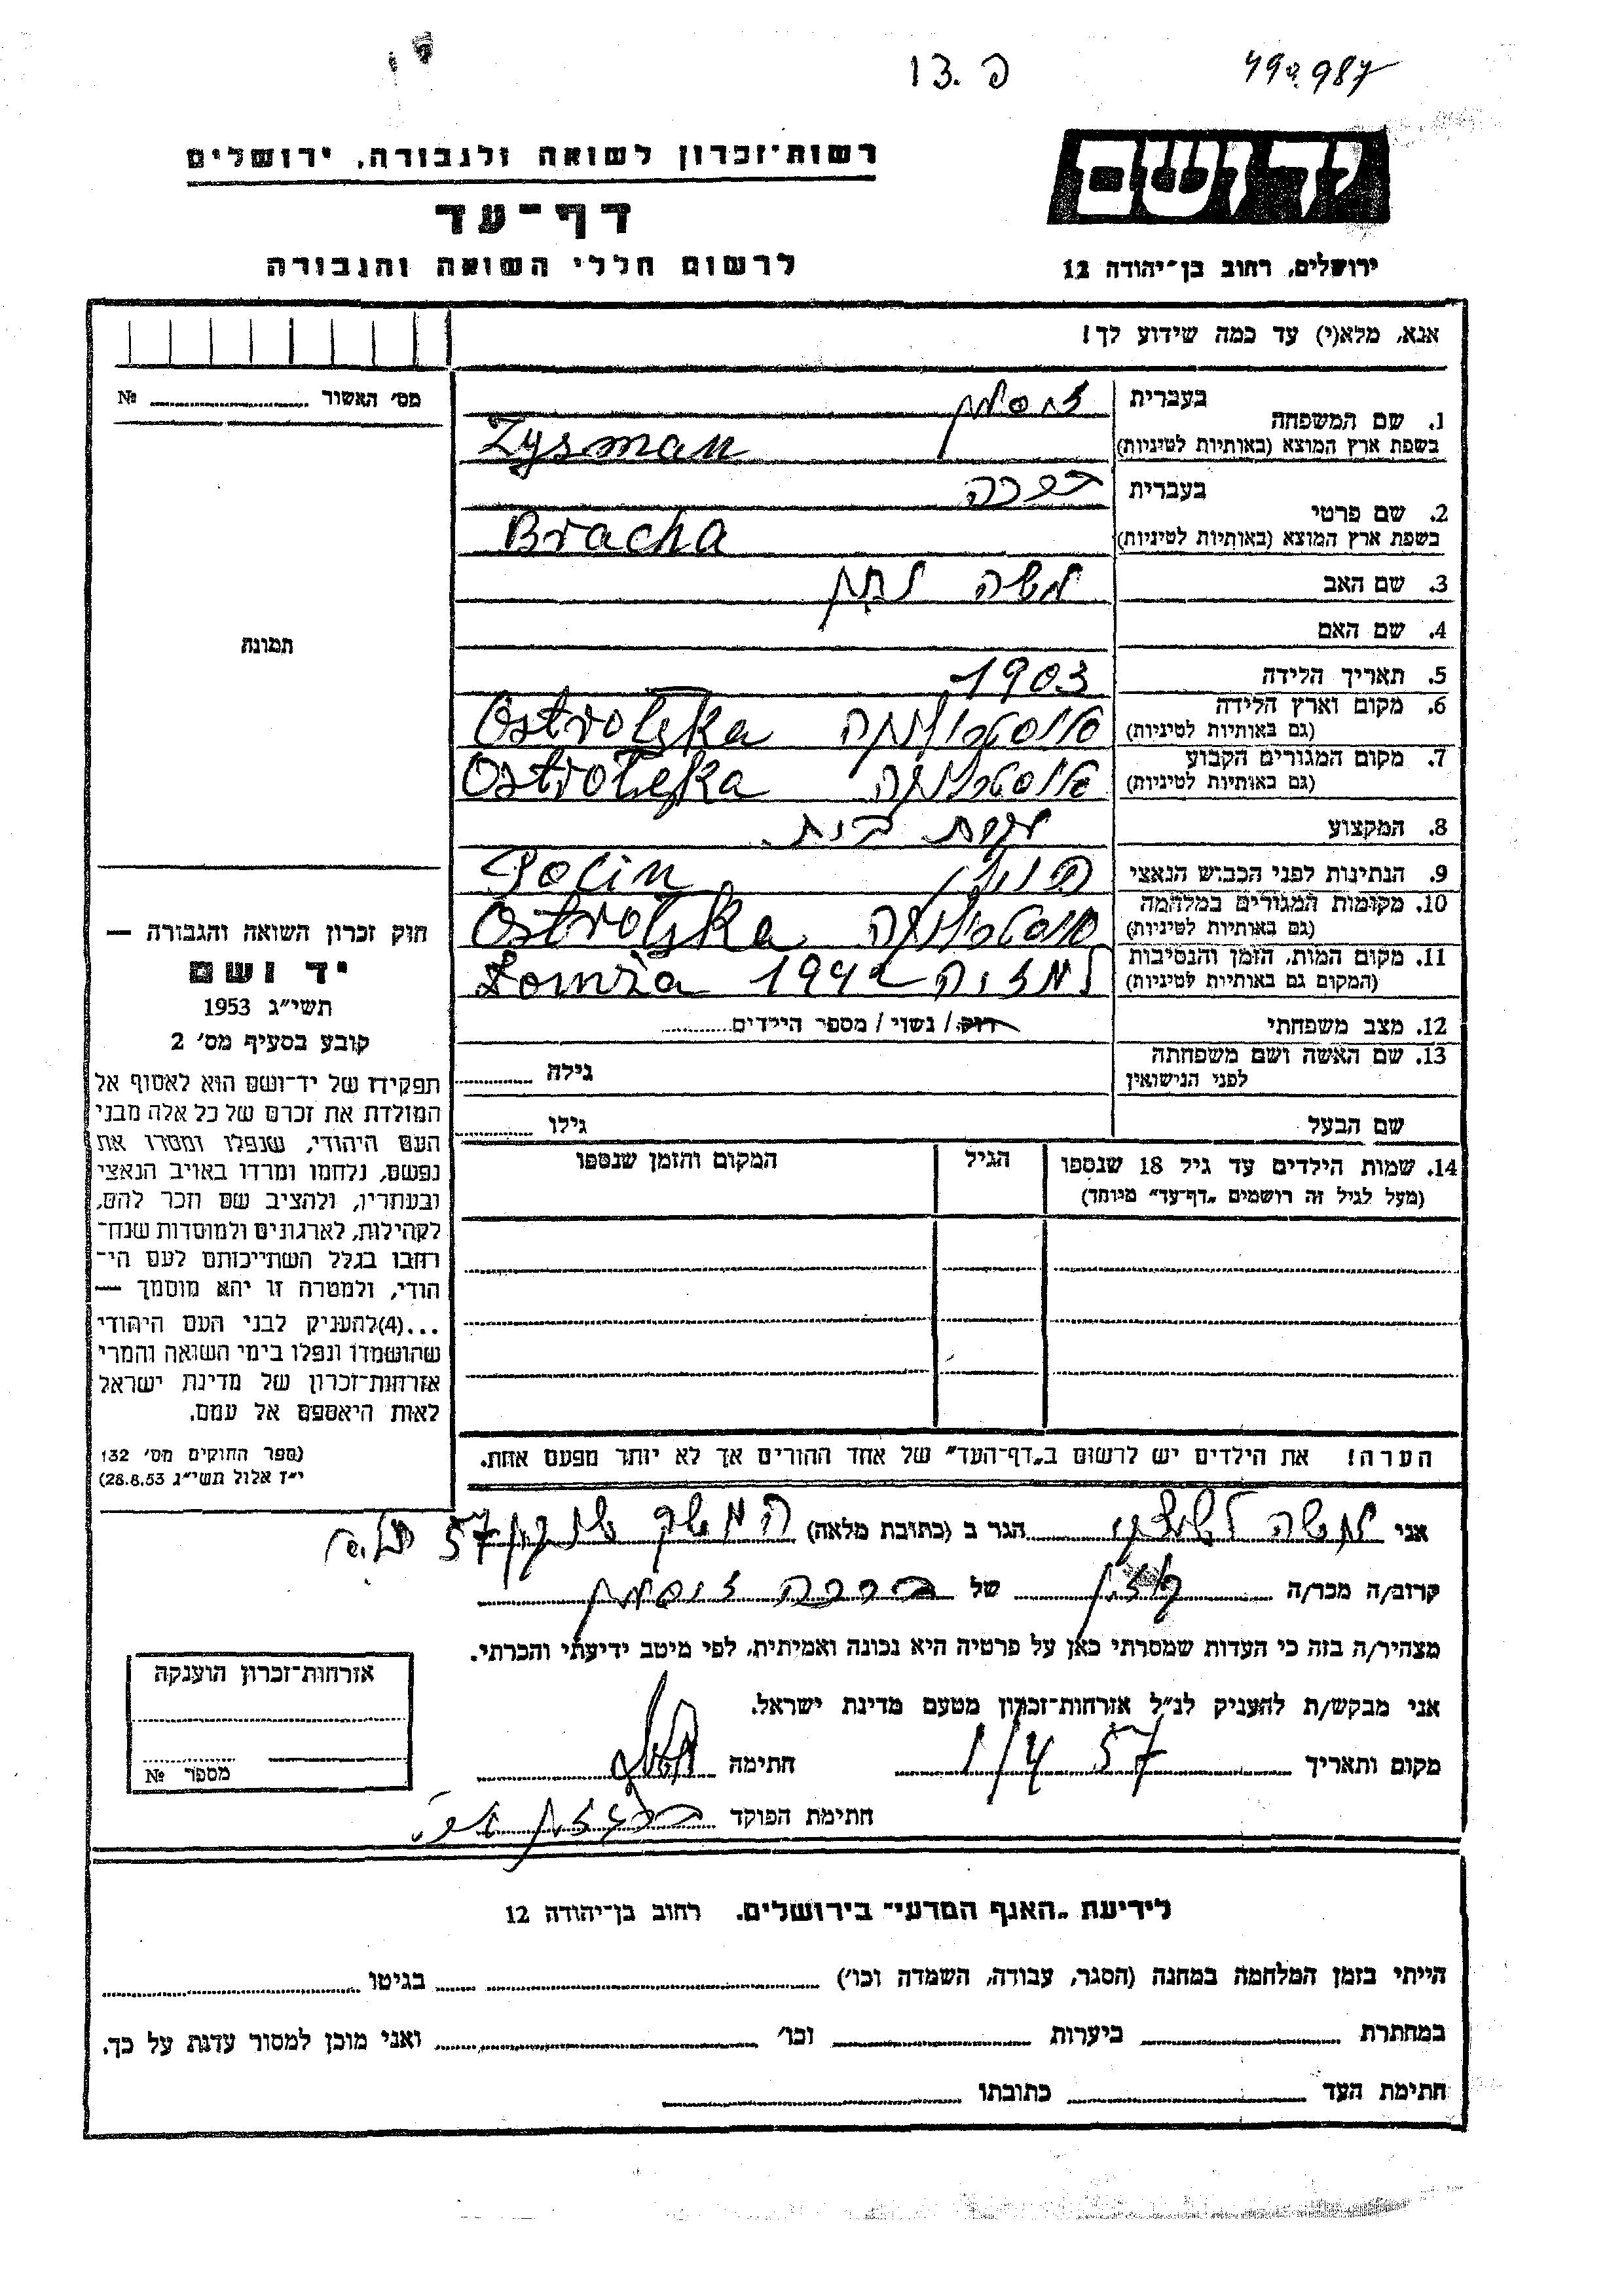 פ. 13
490987
רשות־זכרון לשואה ולגבורה, ירושלים
דף־עד
לרשום חללי השואה והגבורה
יד ושם
ירושלים, רחוב בן־יהודה 12
אנא, מלא(י) עד כמה שידוע לך!
מס׳ האשור №
1. שם המשפחה
בעברית זיסמן
בשפת ארץ המוצא (באותיות לטיניות) Zysman
2. שם פרטי
בעברית ברכה
בשפת ארץ המוצא (באותיות לטיניות) Bracha
3. שם האב משה נתן
4. שם האם
תמונת
5. תאריך הלידה 1903
6. מקום וארץ הלידה אוסטרולנקה Ostrolęka
(גם באותיות לטיניות)
7. מקום המגורים הקבוע אוסטרולנקה Ostrolęka
(גם באותיות לטיניות)
8. המקצוע עקרת בית.
9. הנתינות לפני הכבוש הנאצי פולין Polin
10. מקומות המגורים במלחמה אוסטרולנקה Ostrolęka
(גם באותיות לטיניות)
11. מקום המות, הזמן והנסיבות לומזה 1942 Łomża
(המקום גם באותיות לטיניות)
12. מצב משפחתי רוק/ נשוי / מספר הילדים
13. שם האשה ושם משפחתה
לפני הנישואין גילה
שם הבעל גילו
14. שמות הילדים עד גיל 18 שנספו הגיל המקום והזמן שנספו
(מעל לגיל זה רושמים „דף־עד״ מיוחד)
הערה! את הילדים יש לרשום ב„דף־העד״ של אחד ההורים אך לא יותר מפעם אחת.
חוק זכרון השואה והגבורה —
יד ושם
תשי״ג 1953
קובע בסעיף מס׳ 2
תפקידו של יד־ושם הוא לאסוף אל
המולדת את זכרם של כל אלה מבני
העם היהודי, שנפלו ומסרו את
נפשם, נלחמו ומרדו באויב הנאצי
ובעוזריו, ולהציב שם וזכר להם,
לקהילות, לארגונים ולמוסדות שנח־
רבו בגלל השתייכותם לעם הי־
הודי, ולמטרה זו יהא מוסמך —
...(4)להעניק לבני העם היהודי
שהושמדו ונפלו בימי השואה והמרי
אזרחות־זכרון של מדינת ישראל
לאות היאספם אל עמם.
(ספר החוקים מס׳ 132
י״ז אלול תשי״ג 28.8.53)
אני משה הגר ב (כתובת מלאה) 57
קרוב/ה מכר/ה של ברכה זיסמן
מצהיר/ה בזה כי העדות שמסרתי כאן על פרטיה היא נכונה ואמיתית, לפי מיטב ידיעתי והכרתי.
אני מבקש/ת להעניק לנ״ל אזרחות־זכרון מטעם מדינת ישראל.
מקום ותאריך 1/4 57 חתימה
חתימת הפוקד
אזרחות־זכרון הוענקה
מספר №
לידיעת „האגף המדעי״ בירושלים. רחוב בן־יהודה 12
הייתי בזמן המלחמה במחנה (הסגר, עבודה, השמדה וכו׳) בגיטו
במחתרת ביערות וכו׳ ואני מוכן למסור עדות על כך.
חתימת העד כתובתו